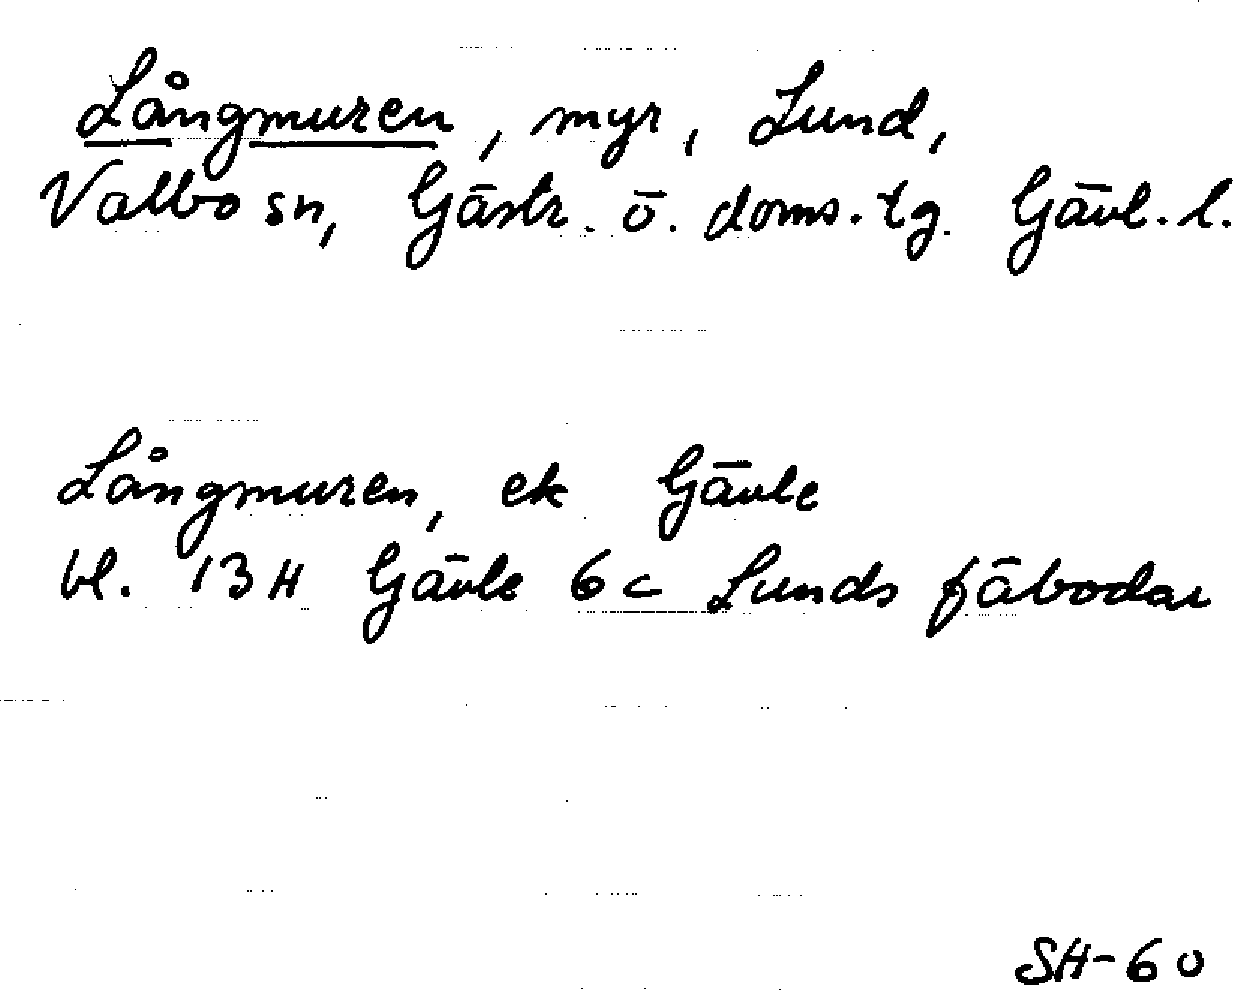 Långmuren, myr, Lund,
Valbo sn, Gästr. ö. doms. tg. Gävl. l.
Långmuren, ek Gävle
bl. 13H Gävle 6c Lunds fäbodar
SH-60